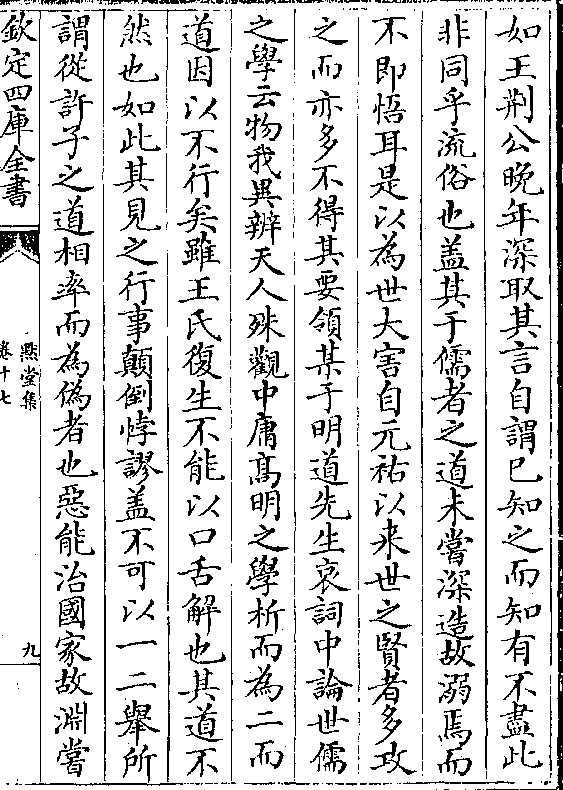 如王荆公晚年深取其言自謂已知之而知有不盡此
非同乎流俗也盖其于儒者之道未嘗深造故溺焉而
不即悟耳是以為世大害自元祐以来世之賢者多攻
之而亦多不得其要領某于明道先生哀詞中論世儒
之學云物我異辨天人殊觀中庸髙明之學析而為二而
道因以不行矣雖王氏復生不能以口舌解也其道不
然也如此其見之行事顛倒悖謬盖不可以一二舉所
謂從許子之道相率而為偽者也惡能治國家故淵嘗
欽定四庫全書
黙堂集
卷十七
九